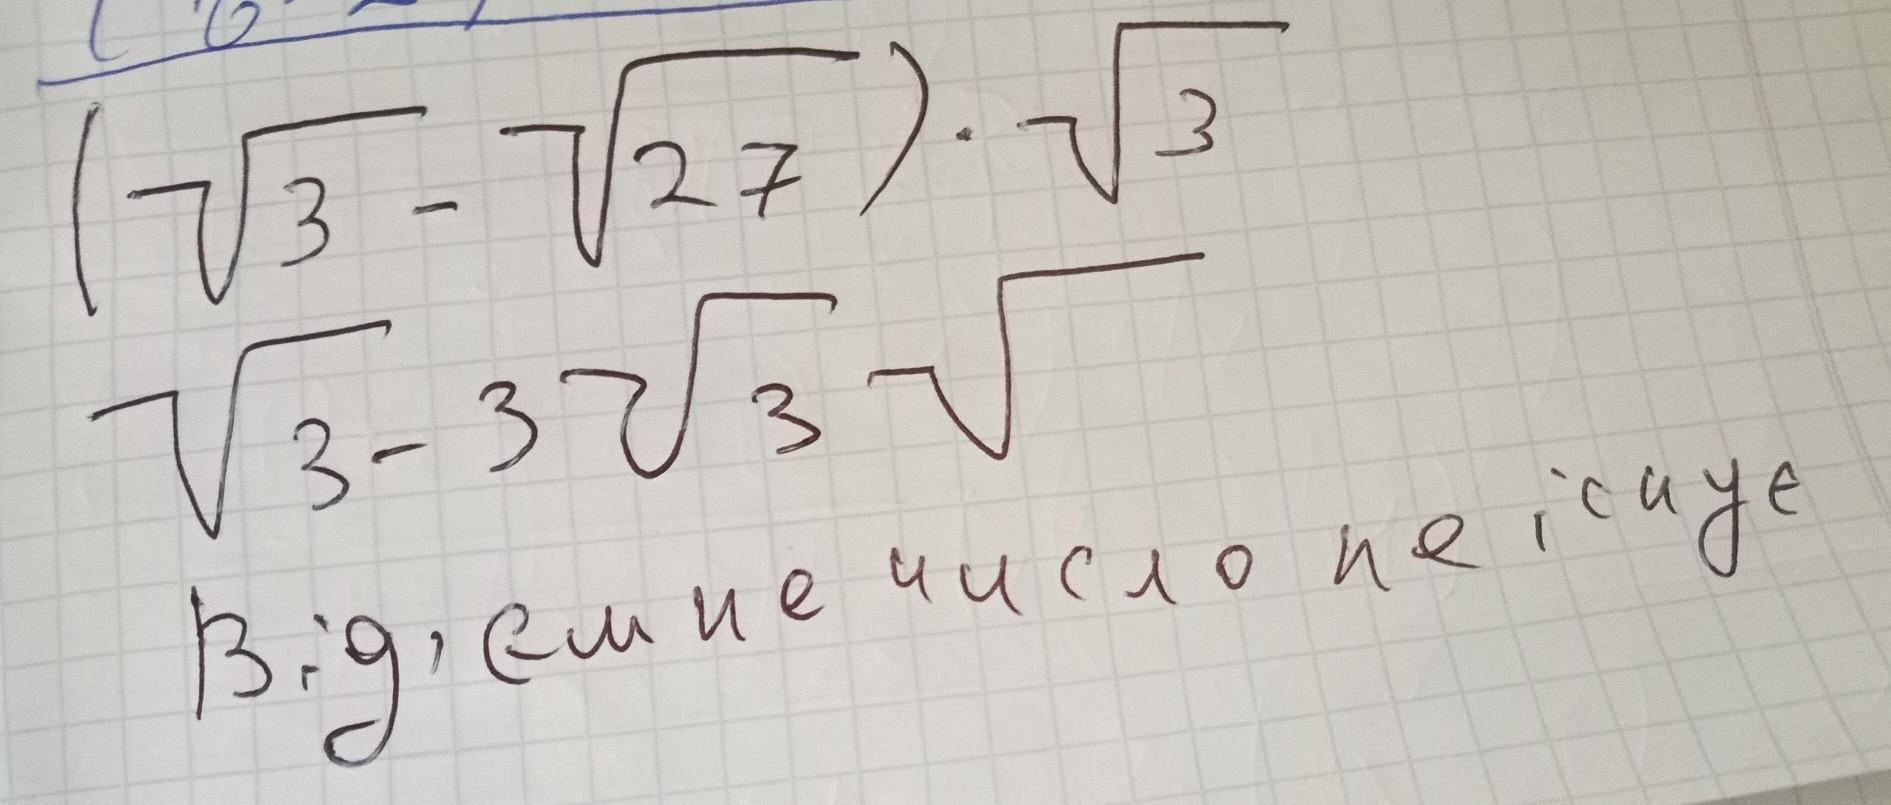 (√3 - √27) · √3
√3 - 3√3 √
Від'ємне число не існує